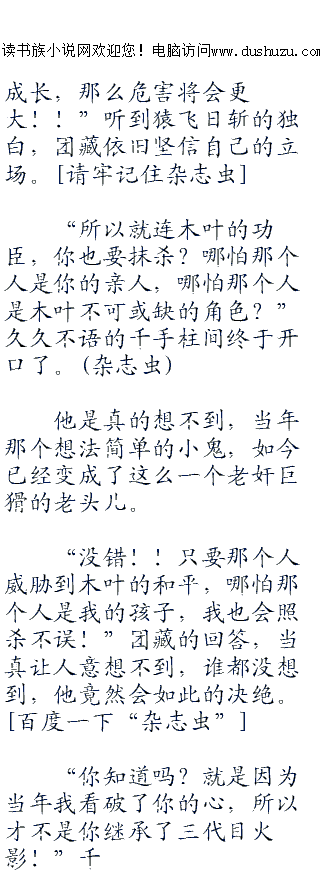 读书族小说网欢迎您！电脑访问www.dushuzu.com
成长，那么危害将会更
大！！”听到猿飞日斩的独
白，团藏依旧坚信自己的立
场。[请牢记住杂志虫]
“所以就连木叶的功
臣，你也要抹杀？哪怕那个
人是你的亲人，哪怕那个人
是木叶不可或缺的角色？”
久久不语的千手柱间终于开
口了。(杂志虫)
他是真的想不到，当年
那个想法简单的小鬼，如今
已经变成了这么一个老奸巨
猾的老头儿。
“没错！！只要那个人
威胁到木叶的和平，哪怕那
个人是我的孩子，我也会照
杀不误！”团藏的回答，当
真让人意想不到，谁都没想
到，他竟然会如此的决绝。
[百度一下“杂志虫”]
“你知道吗？就是因为
当年我看破了你的心，所以
才不是你继承了三代目火
影！”千